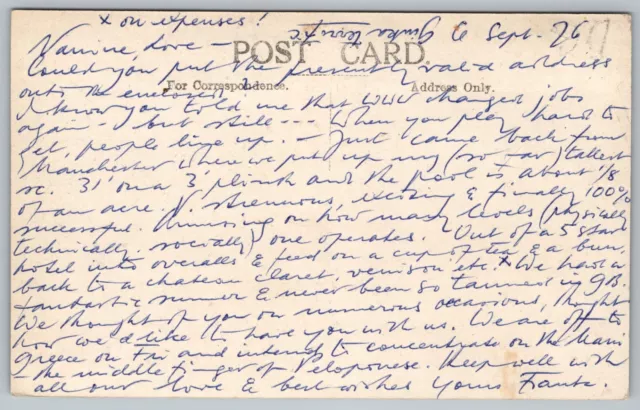 x on expenses!
6 Sept. 76
Nanine, Love —
POST CARD.
Could you put the presently valid address
For Correspondence.
Address Only.
onto the enclosed?
I know you told me that changed jobs
again — but still --- when you play hard to
get, people give up. — Just came back from
Manchester where we put up my (so far) tallest
sc. 31' on a 3' plinth and the pool is about 1/8
of an acre. V. strenuous, exciting & finally 100%
successful. Amusing on how many levels (physically
technically, socially) one operates. Out of a 5 star
hotel into overalls & feed on a cup of tea & a bun,
back to a chateau claret, venison etc. x We had a
fantastic summer & never been so tanned in GB.
We thought of you on numerous occasions, thought
how we'd like to have you with us. We are off to
Greece on Fri and intend to concentrate on the Mani
— the middle finger of Peloponese. Keep well with
all our love & best wishes yours Franta.